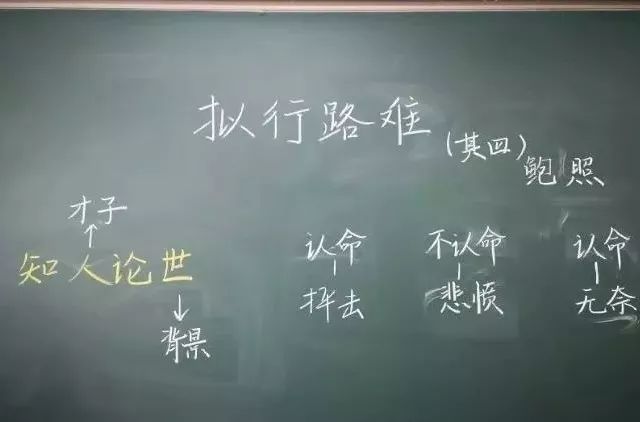 拟行路难
(其四)
鲍照
才子
知人论世
背景
认命 不认命 认命
抨击 悲愤 无奈